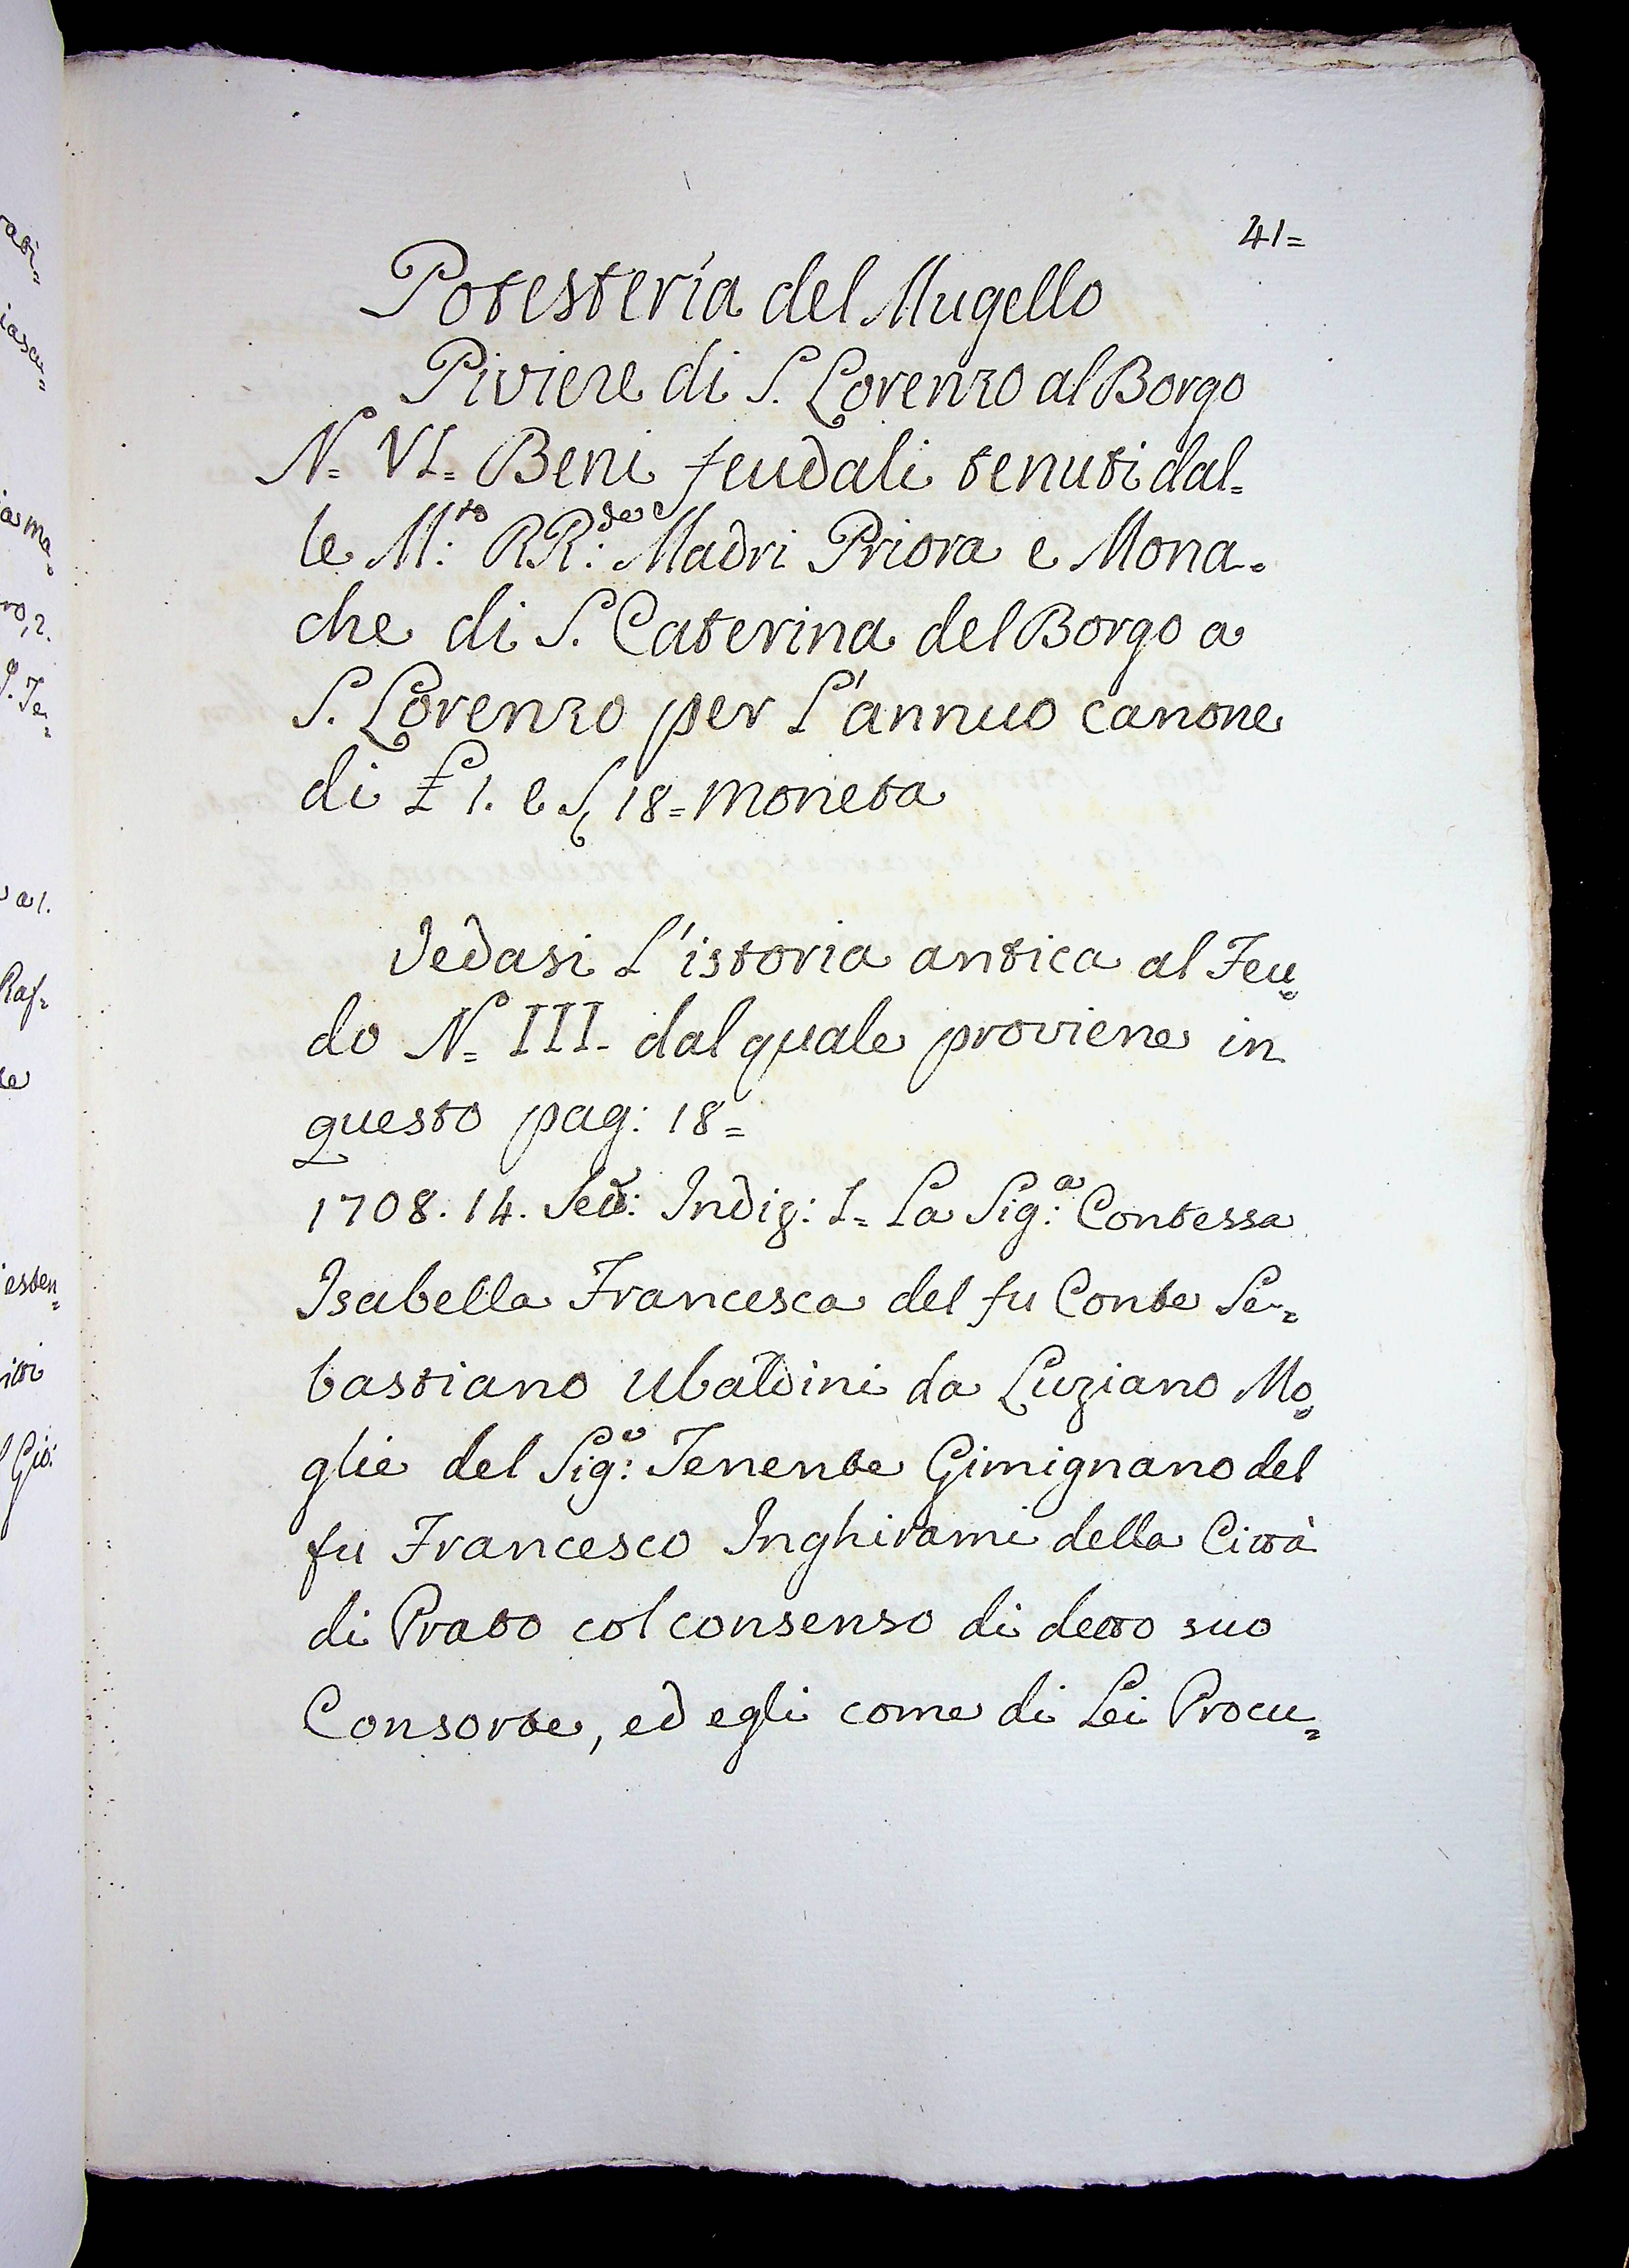 41=
Potesteria del Mugello
Piviere di S. Lorenzo al Borgo
N.= VI= Beni feudali tenuti dal=
le M:to RR:de Madri Priora e Mona=
che di S. Caterina del Borgo a
S. Lorenzo per L'annuo canone
di £ 1. e S, 18= moneta
Vedasi L'istoria antica al Feu=
do N= III- dal quale proviene in
questo pag: 18=
1708. 14. Indiz: I= La Sig:a Contessa
Isabella Francesca del fu Conte Se=
bastiano Ubaldini da Luziano Mo=
glie del Sig:e Tenente Gimignano del
fu Francesco Inghirami della Città
di Prato col consenso di detto suo
Consorte, ed egli come di Lei Procu=